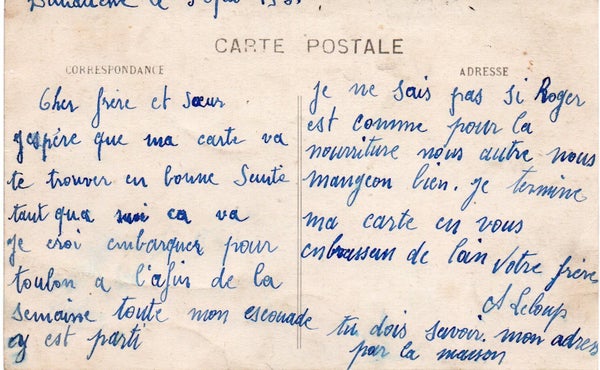 le
CARTE POSTALE
CORRESPONDANCE
ADRESSE
Cher frère et sœur
J'espère que ma carte va
te trouver en bonne Santé
tant qua moi ca va
Je croi embarquer pour
toulon a l'afin de la
semaine toute mon escouade
ey est parti
Je ne sais pas si Roger
est comme pour la
nourriture nous autre nous
mangeon bien. Je termine
ma carte en vous
enbrassan de loin
Votre frère
A Leloup
tu dois savoir. mon adress
par la maison